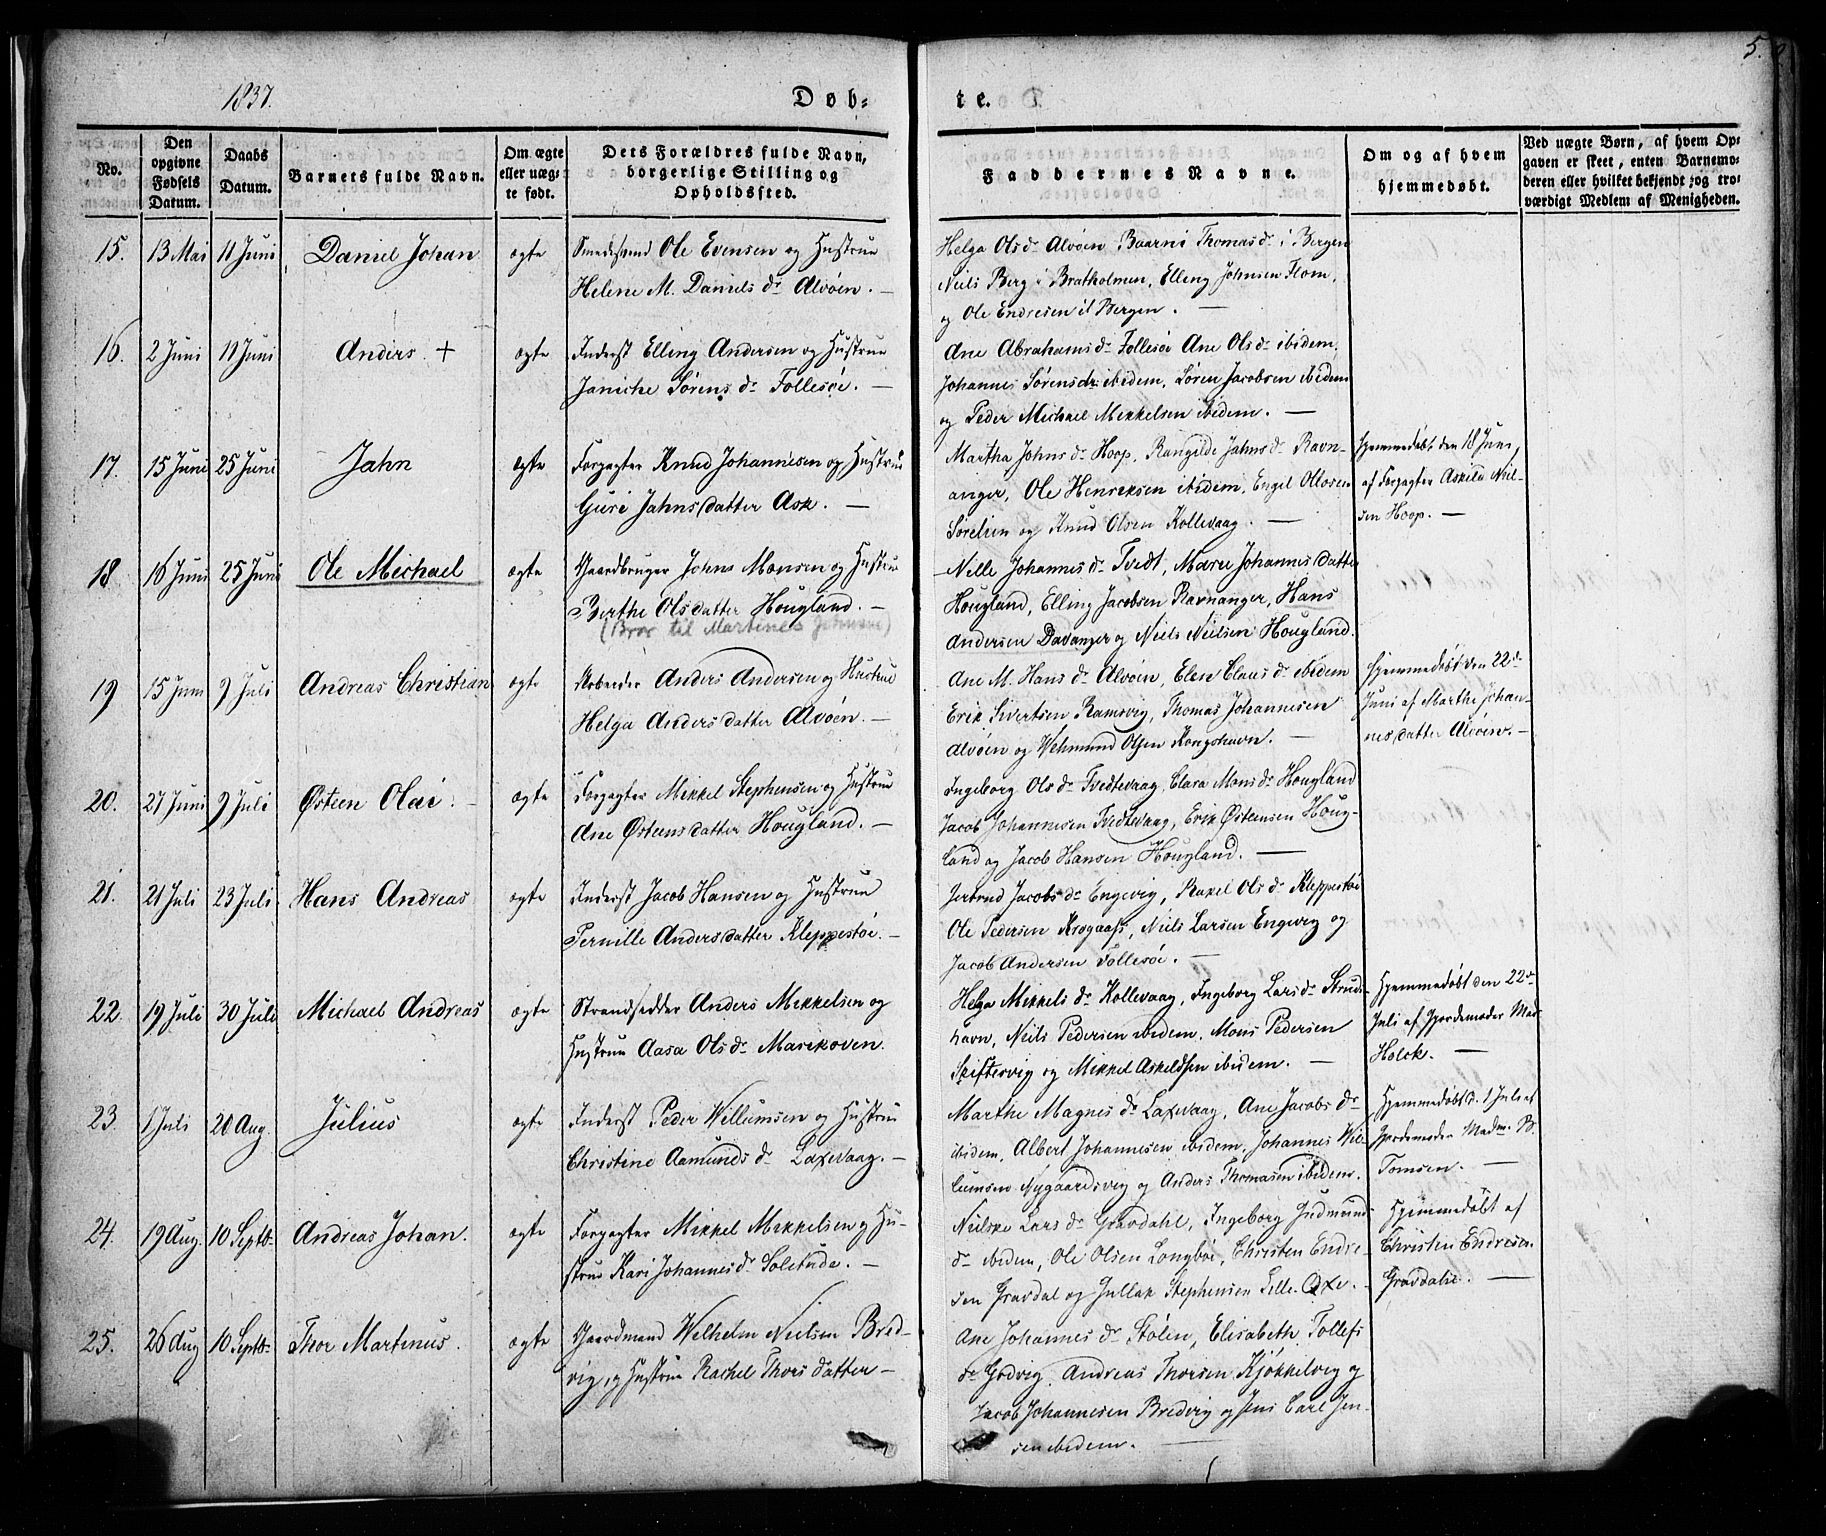 5.
1837.
Døb-
te.
No.
Den opgivne Fødsels Datum.
Daabs Datum.
Barnets fulde Navn.
Om ægte eller uægte født.
Dets Forældres fulde Navn, borgerlige Stilling og Opholdssted.
Faddernes Navne.
Om og af hvem hjemmedøbt.
Ved uægte Børn, af hvem Opgaven er skeet, enten Barnemoderen eller hvilket bekjendt og troværdigt Medlem af Menigheden.
15. 13 Mai 11 Juni Daniel Johan ægte Smedesvend Ole Evensen og Hustrue
Helene M. Daniels dr Alvøen. —
Helga Olsdr Alvøen, Baarni Thomasdr i Bergen
Niels Berg i Bratholmen, Elling Johnsen Flom,
og Ole Endresen i Bergen. —
16. 2 Juni 11 Juni Anders + ægte Inderst Elling Andersen og Hustrue
Janiche Sørens dr Follesøe. —
Ane Abrahamsdr Follesøe Ane Olsdr ibidem,
Johannes Sørensdr ibidem, Søren Jacobsen ibidem
og Peder Michael Mikkelsen ibidem. —
17. 15 Juni 25 Juni Jahn ægte Forpagter Knud Johannesen og Hustrue
Guri Jahnsdatter Ask. —
Martha Johns dr Hoop, Rangilde Jahnsdr Ravn-
anger, Ole Henriksen ibidem, Engel
og Knud Olsen Kollevaag. —
Hjemmedøbt den 18 Juni,
af Forpagter Askild Niel-
sen Hoop. —
18 16 Juni 25 Juni Ole Michael ægte Gaardbruger Johns Monsen og Hustrue
Berthe Olsdatter Hougland. —
(Bror til Martines Johnsen)
Nille Johannesdr Tvedt, Mare Johannesdatter
Hougland, Elling Jacobsen Ravnanger, Hans
Andersen Davanger og Niels Nielsen Hougland.
19 15 Juni 9 Juli Andreas Christian ægte Arbeider Anders Andersen og Hustrue
Helga Andersdatter Alvøen. —
Ane M. Hansdr Alvøin, Elen Clausdr ibidem
Erik Sivertsen Ramsvig, Thomas Johannesen
Alvøen og Wehmund Olsen Kongshavn. —
Hjemmedøbt den 22de
Juni af Marthe Johan-
nesdatter Alvøen. —
20. 27 Juni 9 Juli Østen Olai. ægte Forpagter Mikkel Stephensen og Hustrue
Ane Østensdatter Hougland. —
Ingeborg Olsdr Tvedtevaag, Clara Monsdr Hougland
Jacob Johannesen Tvedtevaag, Erik Østensen Houg-
land og Jacob Hansen Hougland. —
21. 21 Juli 23 Juli Hans Andreas ægte Inderst Jacob Hansen og Hustrue
Pernille Andersdatter Kleppestøe. —
Jertrud Jacobsdr Engevig, Rakel Olsdr Kleppestøe
Ole Pedersen Krogaas, Niels Larsen Engevig og
Jacob Andersen Follesøe. —
22. 19 Juli 30 Juli Michael Andreas ægte Strandsedder Anders Mikkelsen og
Hustrue Aasa Olsdr Marikoven.
Helga Mikkelsdr Kollevaag, Ingeborg Larsdr Struds-
havn, Niels Pedersen ibidem, Mons Pedersen
Skiftesvig og Mikkel Askeldsen ibidem. —
Hjemmedøbt den 22de
Juli af Gjordemoder Mad.
Holck. —
23. 1 Juli 20 Aug. Julius ægte Inderst Peder Willumsen og Hustrue
Christine Aamundsdr Laxevaag. —
Marthe Magnesdr Laxevaag, Ane Jacobsdr
ibidem, Albert Johannesen ibidem, Johannes Wil-
lumsen Nygaardsvig og Anders Thomasen ibidem.
Hjemmedøbt d. 1 Juli af
Gjordemoder Madm. B.
Tomsen. —
24. 19 Aug. 10 Septb. Andreas Johan. ægte Forpagter Mikkel Mikkelsen og Hu-
strue Kari Johannesdr Solitude. —
Nielske Larsdr Gravdahl, Ingeborg Gudmunds-
dr ibidem, Ole Olsen Longbøe, Christen Endre-
sen Gravdal og Gullak Stephensen Lille Oxe. —
Hjemmedøbt af
Christen Endresen
Gravdahl. —
25. 26 Aug 10 Septb. Thor Martinus. ægte Gaardmand Wilhelm Nielsen Bred-
vig, og Hustrue Rachel Thorsdatter —
Ane Johannesdr Stølen, Elisabeth Tollefs
dr Godvig, Andreas Thorsen Kjøkkelvig og
Jacob Johannesen Bredvig og Jens Carl Jen-
sen ibidem. —